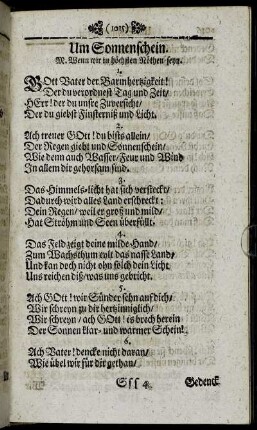 ( 1015 )
Um Sonnenschein.
M. Wenn wir in höchsten Nöthen seyn.
1.
GOtt Vater der Barmhertzigkeit!
Der du verordnest Tag und Zeit/
HErr! der du unsre Zuversicht/
Der du giebst Finsterniß und Licht.
2.
Ach treuer GOtt! du bists allein/
Der Regen giebt und Sonnenschein/
Wie denn auch Wasser/ Feur und Wind
In allem dir gehorsam sind.
3.
Das Himmels-licht hat sich versteckt/
Dadurch wird alles Land erschreckt:
Dein Regen/ weil er groß und mild/
Hat Ströhm und Seen überfüllt.
4.
Das Feld zeigt deine milde Hand/
Zum Wachsthum rufft das nasse Land/
Und kan doch nicht ohn solch dein Licht
Uns reichen diß/ was uns gebricht.
5.
Ach GOtt! wir Sünder sehn auf dich/
Wir schreyn zu dir hertzinniglich/
Wir schreyn/ ach GOtt! es brech herein
Der Sonnen klar- und warmer Schein!
6.
Ach Vater! dencke nicht daran/
Wie übel wir für dir gethan/
Sss 4
Gedenck